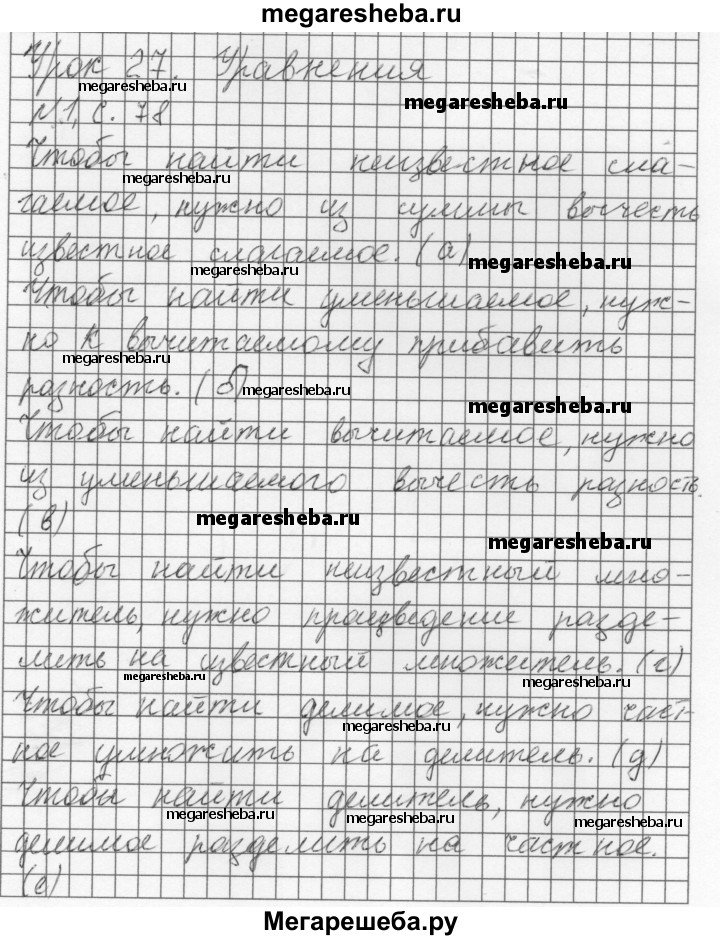 megaresheba.ru
Урок 27. Уравнения
megaresheba.ru
megaresheba.ru
№1, с. 78
megaresheba.ru
Чтобы найти неизвестное сла-
megaresheba.ru
гаемое, нужно из суммы вычесть
megaresheba.ru
известное слагаемое. (а)
megaresheba.ru
megaresheba.ru
Чтобы найти уменьшаемое, нуж-
но к вычитаемому прибавить
megaresheba.ru
разность. (б)
megaresheba.ru
megaresheba.ru
Чтобы найти вычитаемое, нужно
из уменьшаемого вычесть разность.
(в)
megaresheba.ru
megaresheba.ru
Чтобы найти неизвестный мно-
житель, нужно произведение разде-
лить на известный множитель. (г)
megaresheba.ru
megaresheba.ru
Чтобы найти делимое, нужно част-
megaresheba.ru
ное умножить на делитель. (д)
Чтобы найти делитель, нужно
megaresheba.ru
megaresheba.ru
megaresheba.ru
делимое разделить на частное.
(е)
Мегарешеба.ру